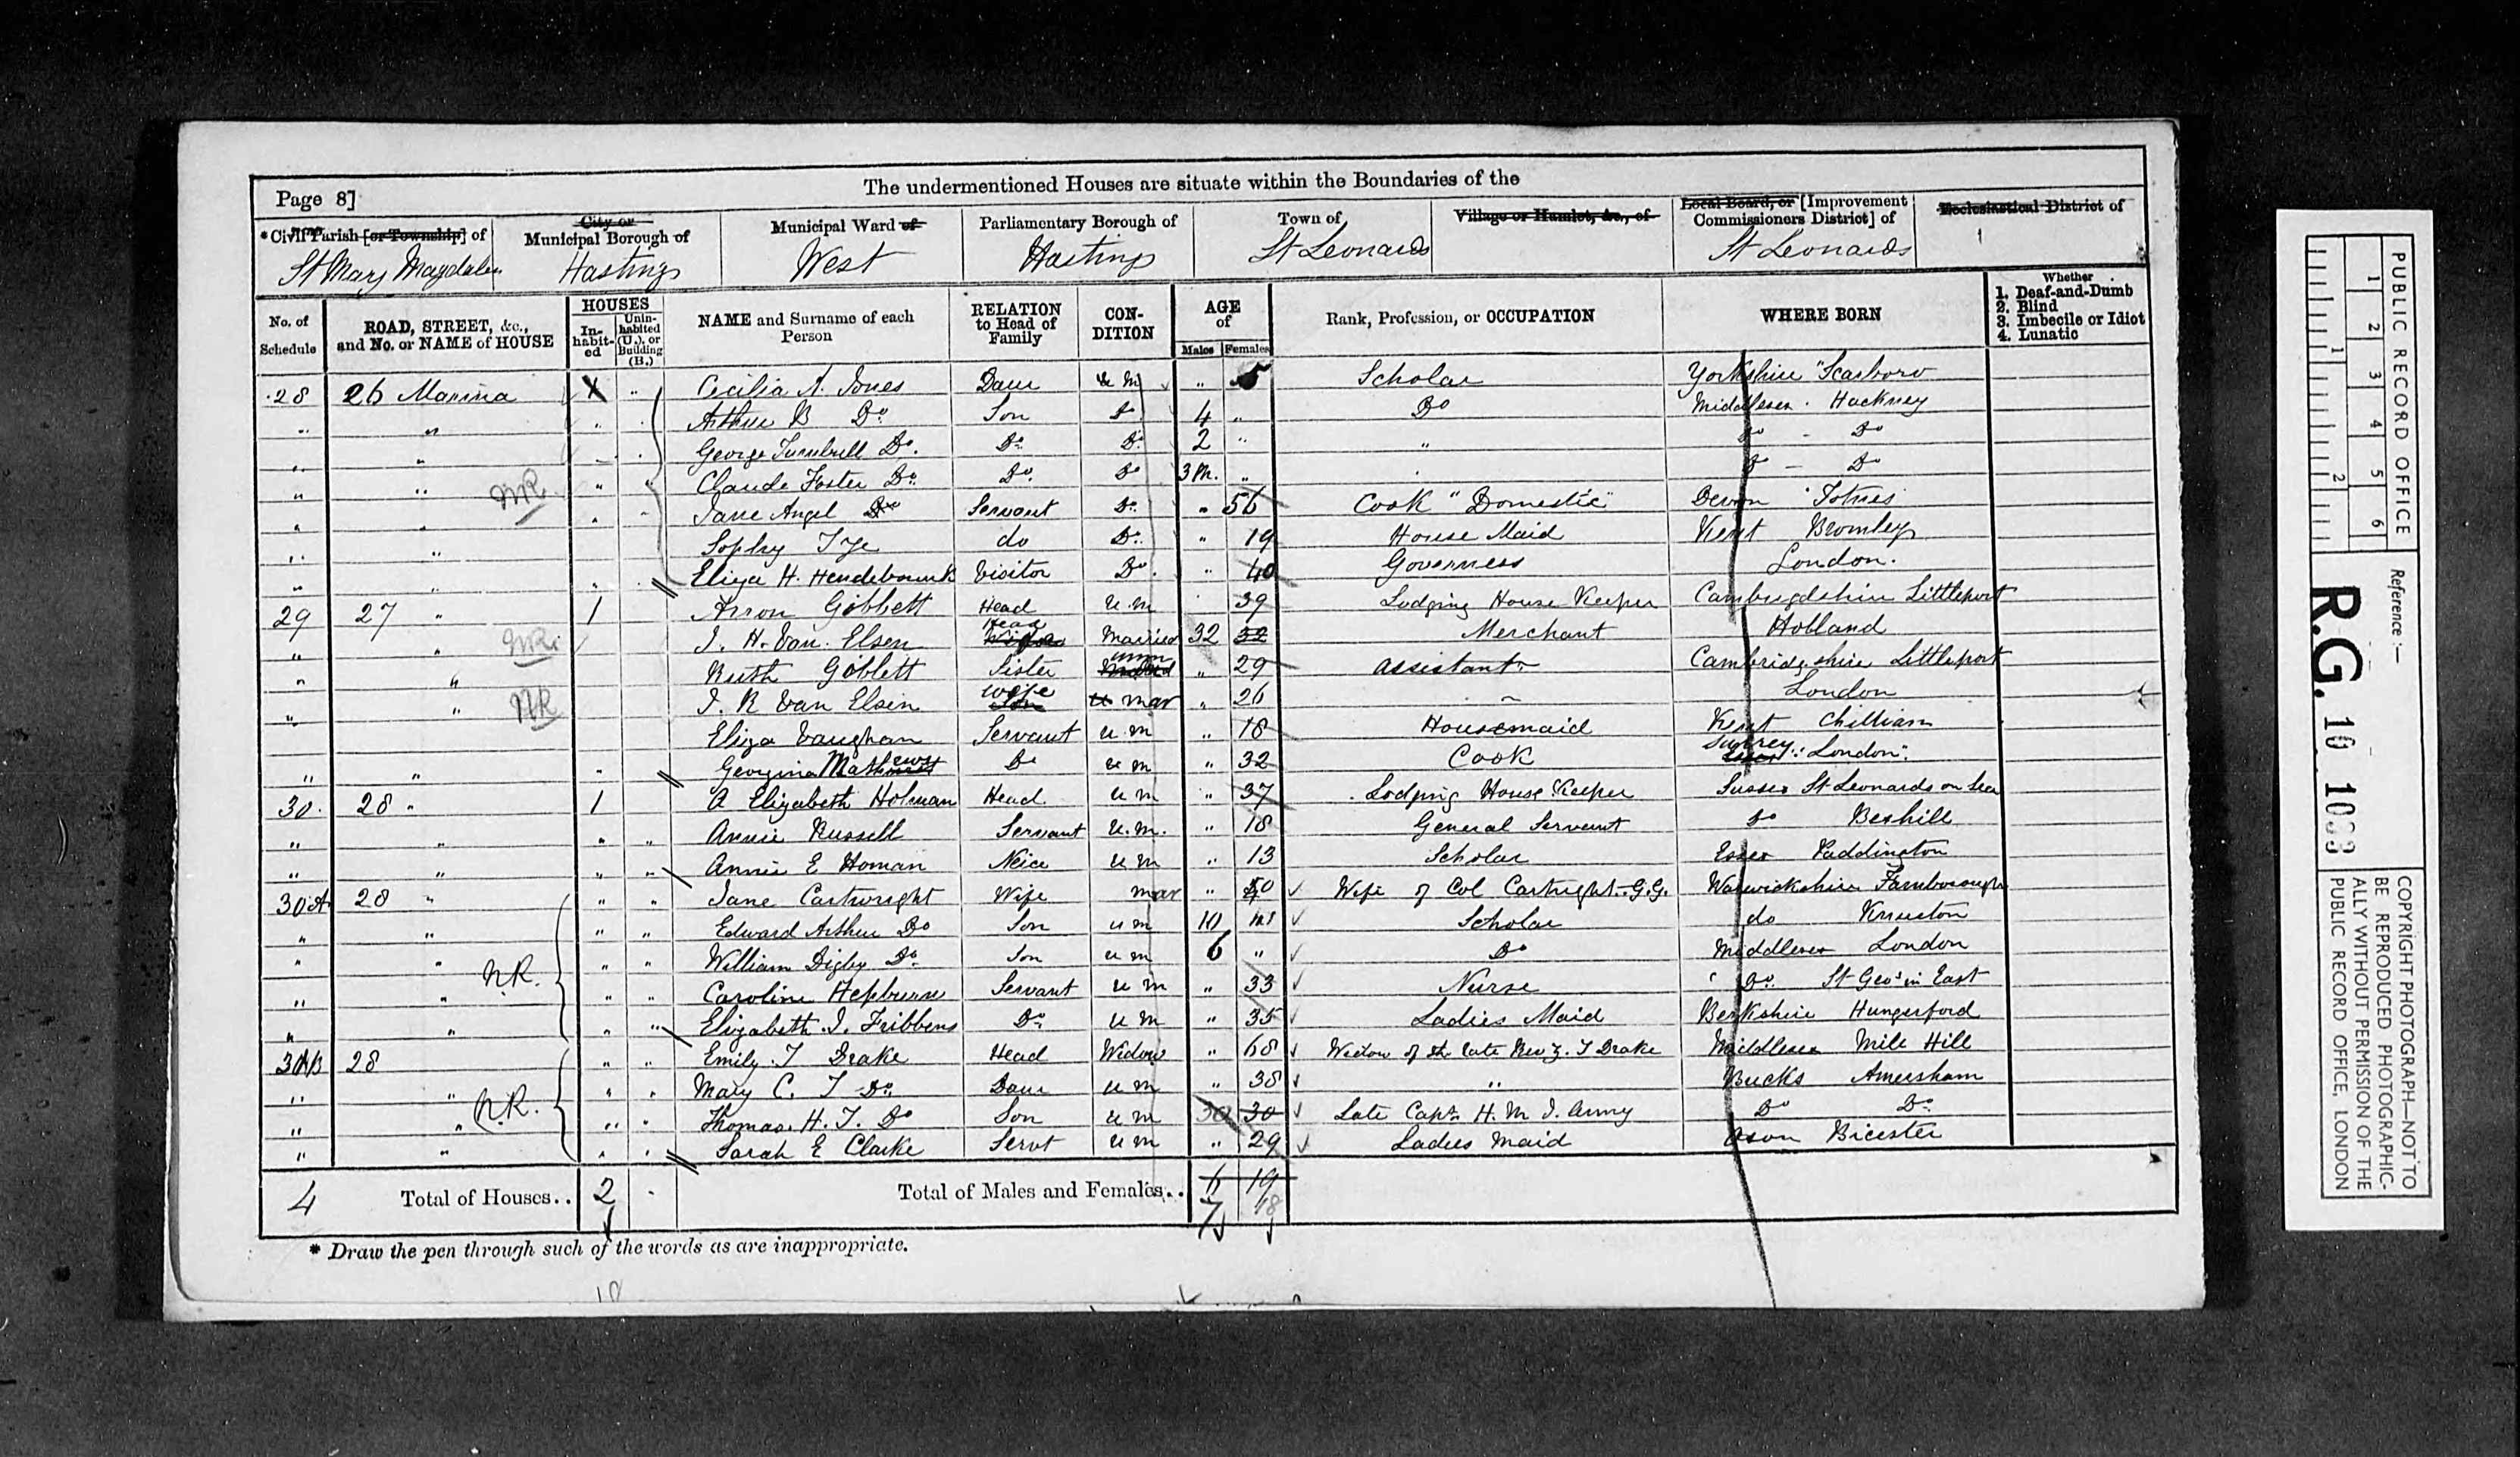 The undermentioned Houses are situate within the Boundaries of the
Page 8]
*Civil Parish [or Township] of
City or Municipal Borough of
Municipal Ward of
Parliamentary Borough of
Town of
Village or Hamlet, &c., of
Local Board, or [Improvement Commissioners District] of
Ecclesiastical District of
St Mary Magdalen Hastings West Hastings St Leonards St Leonards
No. of Schedule
ROAD, STREET, &c., and No. or NAME of HOUSE
HOUSES
In-habit-ed
Unin-habited (U.), or Building (B.)
NAME and Surname of each Person
RELATION to Head of Family
CON-DITION
AGE of
Males Females
Rank, Profession, or OCCUPATION
WHERE BORN
Whether
1. Deaf-and-Dumb
2. Blind
3. Imbecile or Idiot
4. Lunatic
28 26 Marina X Cecilia A. Jones Daur u m " 5 Scholar Yorkshire "Scarboro
" " Arthur B Do Son Do 4 " Do Middlesex Hackney
" " George Turnbull Do. Do. Do. 2 " " Do - Do
" " NR Claude Foster Do. Do. Do 3m. " Do - Do
" " Jane Angel Do Servant Do. " 56 Cook "Domestic" Devon Totnes
" " Sophy Tye do Do. " 19 House Maid Kent Bromley
" " Eliza H. Visitor Do. " 40 Governess London.
29 27 " 1 Arron Gobbett Head u.m 39 Lodging House Keeper Cambrigdshire Littleport
" " NR J. H. Van Elsen Head Married 32 32 Merchant Holland
" " Ruth Gobbett Sister unm " 29 assistant Cambridgshire Littleport
" " NR J. R Van Elsen wife u mar " 26 London
Eliza Vaughan Servant u.m " 18 Housemaid Kent Chilliam
" " Georgina Mathews Do u m " 32 Cook Surrey "London"
30 28 " 1 A Elizabeth Holman Head u m " 37 Lodging House Keeper Sussex St Leonards on Sea
" " Annie Russell Servant u.m. " 18 General Servant Do Bexhill
" " Annie E Homan Neice u m " 13 Scholar Essex Paddington
30A 28 " Jane Cartwright Wife mar " 50 Wife of Col Cartright. G.G. Warwickshire Farnborough
" " Edward Arthur Do Son u m 10 Scholar do
" " William Digby Do. Son u m 6 " Do Middlesex London
" " NR. Caroline Hepburn Servant u m " 33 Nurse Do. St Geo's in East
" " Elizabeth J. Fribbens Do. u m " 35 Ladies Maid Berkshire Hungerford
30B 28 Emily T Drake Head Widow " 68 Widow of the late Rev. T Drake Middlesex Mill Hill
" " Mary C. T Do. Daur u m " 38 " Bucks Amersham
" " NR. Thomas H. T. Do Son u m 30 30 Late Capt. H. M I. Army Do Do.
" " Sarah E Clarke Servt u m " 29 Ladies Maid Oxon Bicester
4 Total of Houses.. 2 Total of Males and Females.. 6 19
7 18
* Draw the pen through such of the words as are inappropriate.
PUBLIC RECORD OFFICE
1 2 3 4 5 6
1 2
Reference :—
R.G. 10 1033
COPYRIGHT PHOTOGRAPH—NOT TO
BE REPRODUCED PHOTOGRAPHIC-
ALLY WITHOUT PERMISSION OF THE
PUBLIC RECORD OFFICE, LONDON